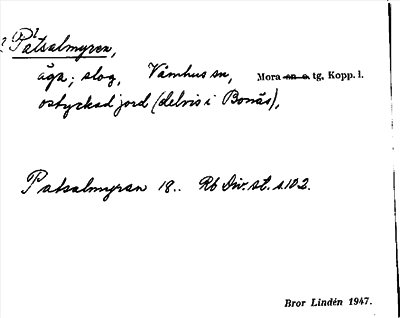 Patsalmyren,
äga; slog, Våmhus sn, Mora sn o. tg, Kopp. l.
ostyckad jord (delvis i Bonäs),
Patsalmyran 18.. Rb Div. st. s. 102.
Bror Lindén 1947.